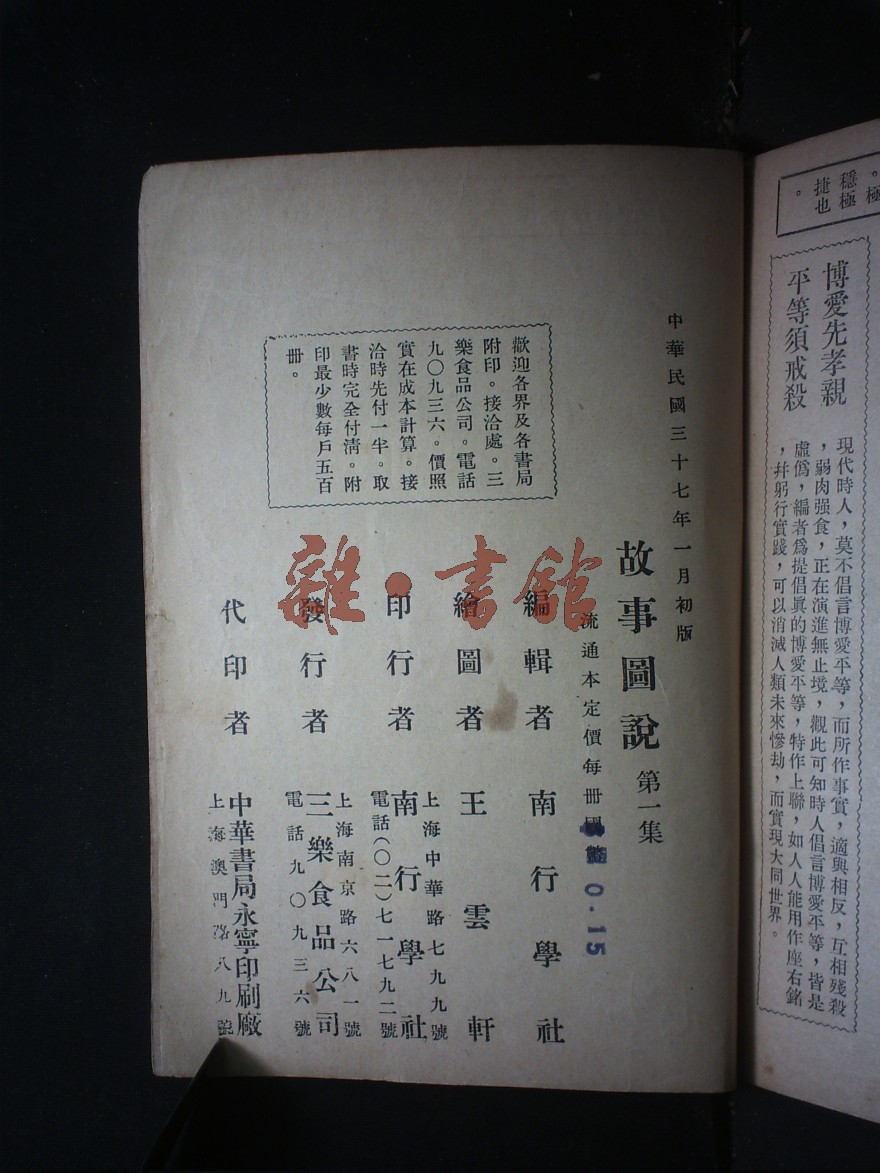 。極
穩極
捷也
。
博愛先孝親
平等須戒殺
現代時人，莫不倡言博愛平等，而所作事實，適與相反，互相殘殺
，弱肉强食，正在演進無止境，觀此可知時人倡言博愛平等，皆是
虛僞，編者爲提倡眞的博愛平等，特作上聯，如人人能用作座右銘
，幷躬行實踐，可以消滅人類未來慘劫，而實現大同世界。
中華民國三十七年一月初版
故事圖說 第一集
流通本定價每册國幣 0.15
編輯者 南行學社
繪圖者 王雲軒
上海中華路七九九號
印行者 南行學社
電話(〇二)七一七九二號
上海南京路六八一號
發行者 三樂食品公司
電話九〇九三六號
代印者 中華書局永寧印刷廠
上海澳門路八九號
歡迎各界及各書局
附印。接洽處。三
樂食品公司。電話
九〇九三六。價照
實在成本計算。接
洽時先付一半。取
書時完全付清。附
印最少數每戶五百
册。
雜·書館